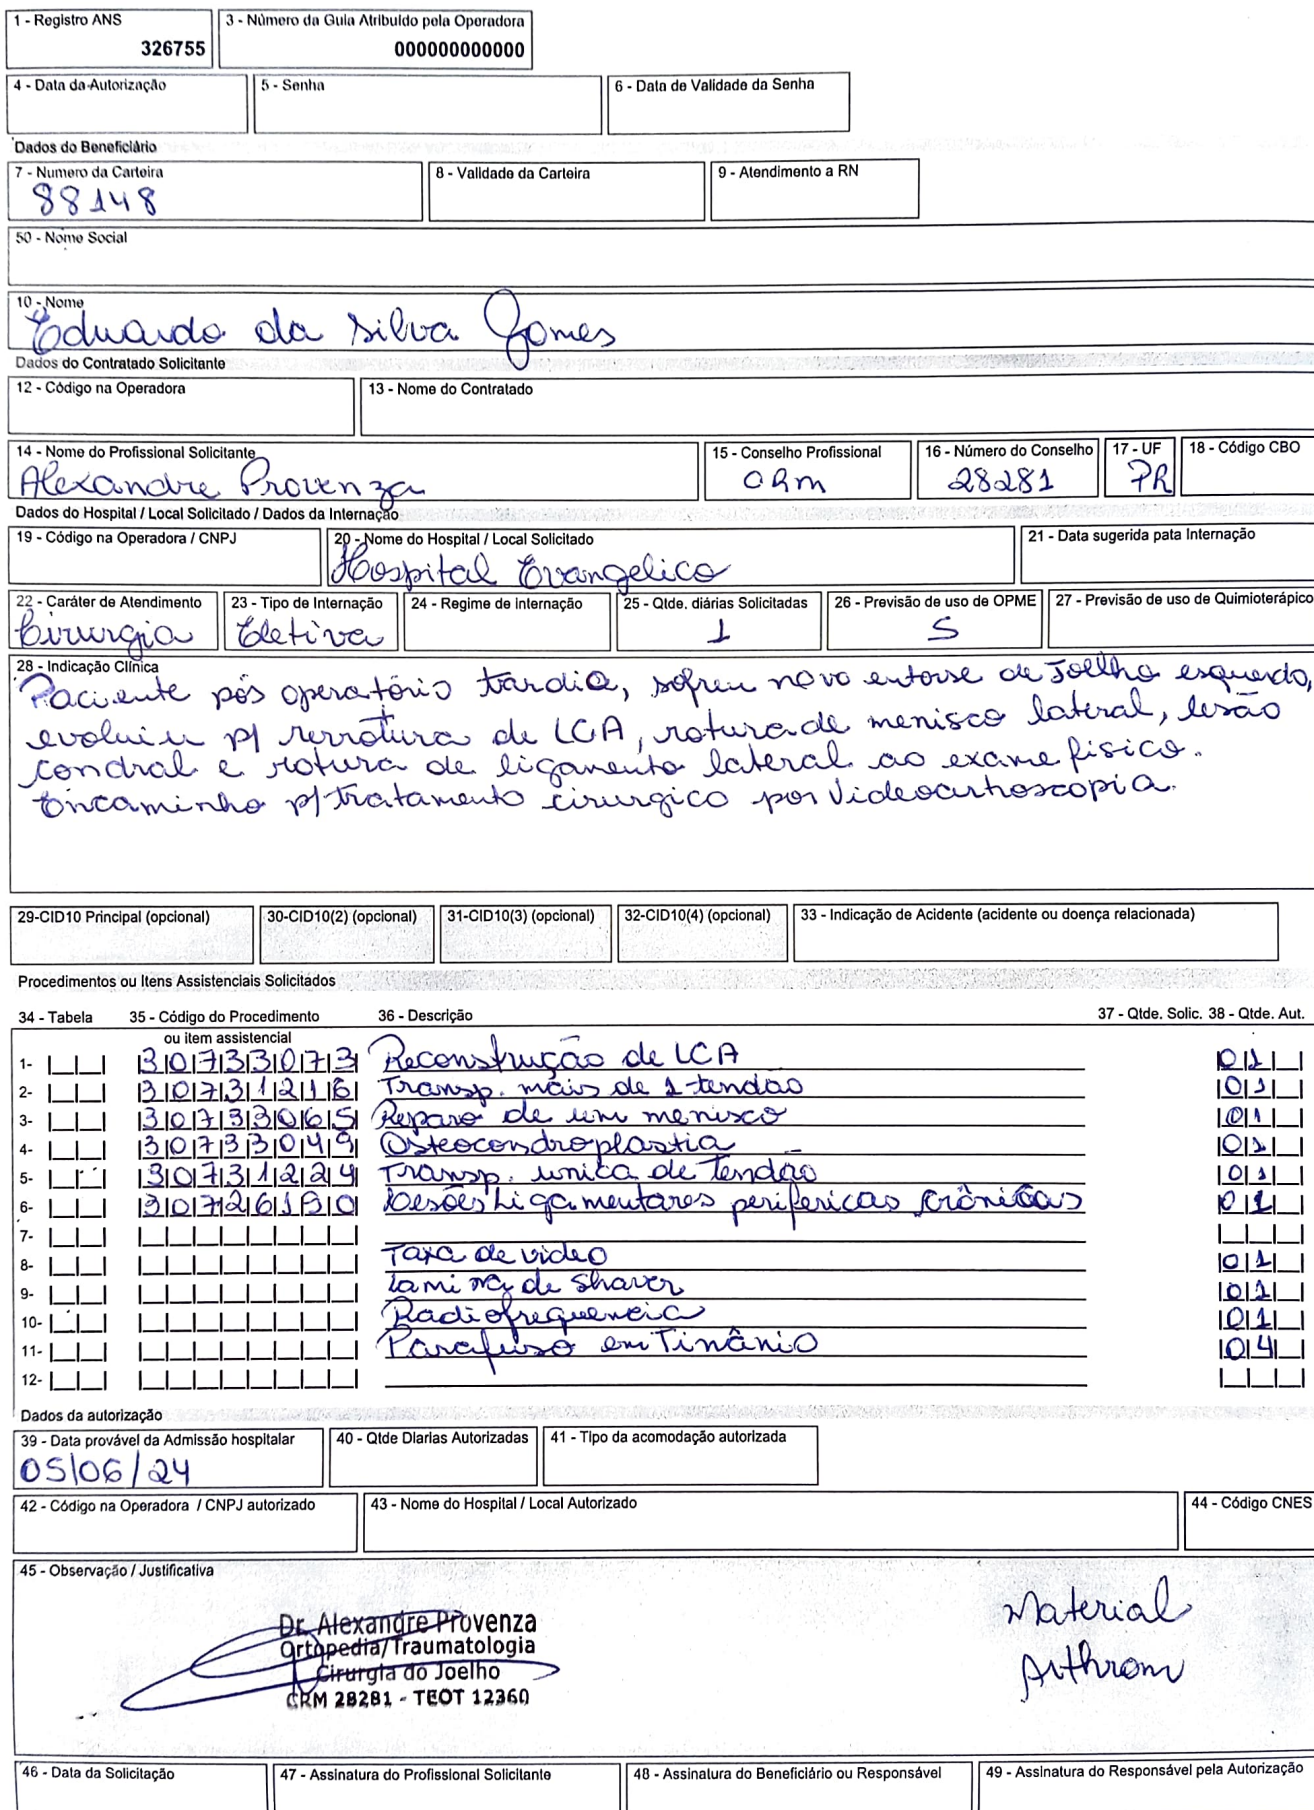 1 - Registro ANS
326755
3 - Número da Guia Atribuído pela Operadora
000000000000
4 - Data da Autorização
5 - Senha
6 - Data de Validade da Senha
Dados do Beneficiário
7 - Numero da Carteira
88148
8 - Validade da Carteira
9 - Atendimento a RN
50 - Nome Social
10 - Nome
Eduardo da Silva Gomes
Dados do Contratado Solicitante
12 - Código na Operadora
13 - Nome do Contratado
14 - Nome do Profissional Solicitante
Alexandre Provenza
15 - Conselho Profissional
CRM
16 - Número do Conselho
28281
17 - UF
PR
18 - Código CBO
Dados do Hospital / Local Solicitado / Dados da Internação
19 - Código na Operadora / CNPJ
20 - Nome do Hospital / Local Solicitado
Hospital Evangelico
21 - Data sugerida pata Internação
22 - Caráter de Atendimento
Cirurgia
23 - Tipo de Internação
Eletiva
24 - Regime de internação
25 - Qtde. diárias Solicitadas
1
26 - Previsão de uso de OPME
S
27 - Previsão de uso de Quimioterápico
28 - Indicação Clínica
Paciente pós operatório tardio, sofreu novo entorse de Joelho esquerdo,
evoluiu p/ rerrotura de LCA, rotura de menisco lateral, lesão
condral e rotura de ligamento lateral ao exame fisico.
Encaminho p/ tratamento cirurgico por Videoartroscopia.
29-CID10 Principal (opcional)
30-CID10(2) (opcional)
31-CID10(3) (opcional)
32-CID10(4) (opcional)
33 - Indicação de Acidente (acidente ou doença relacionada)
Procedimentos ou Itens Assistenciais Solicitados
34 - Tabela
35 - Código do Procedimento ou item assistencial
36 - Descrição
37 - Qtde. Solic. 38 - Qtde. Aut.
1- 30733073 Reconstrução de LCA 01
2- 30731216 Transp. mais de 1 tendão 01
3- 30733065 Reparo de um menisco 01
4- 30733049 Osteocondroplastia 01
5- 30731224 Transp. unica de Tendão 01
6- 30726190 Lesões Ligamentares perifericas crônicas 01
7-
8- Taxa de video 01
9- Lamina de Shaver 01
10- Radiofrequencia 01
11- Parafuso em Tinânio 04
12-
Dados da autorização
39 - Data provável da Admissão hospitalar
05/06/24
40 - Qtde Diarias Autorizadas
41 - Tipo da acomodação autorizada
42 - Código na Operadora / CNPJ autorizado
43 - Nome do Hospital / Local Autorizado
44 - Código CNES
45 - Observação / Justificativa
Dr. Alexandre Provenza
Ortopedia/Traumatologia
Cirurgia do Joelho
CRM 28281 - TEOT 12360
Material
Arthrom
46 - Data da Solicitação
47 - Assinatura do Profissional Solicitante
48 - Assinatura do Beneficiário ou Responsável
49 - Assinatura do Responsável pela Autorização